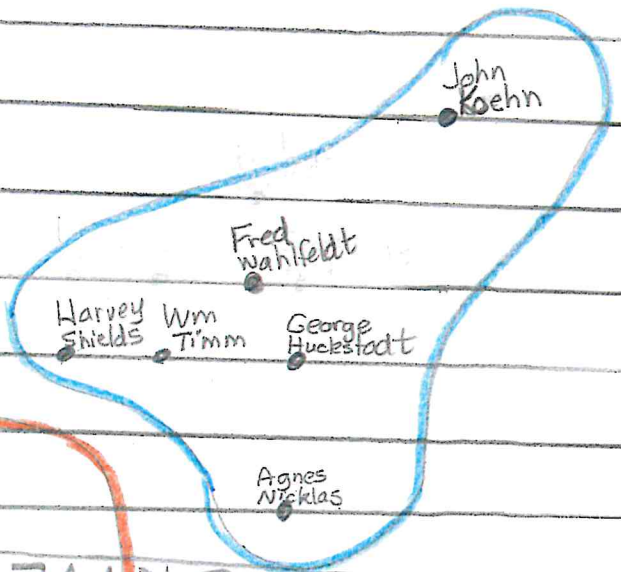 John
Koehn
Fred
Wahlfeldt
Harvey
Shields
Wm
Timm
George
Huckstadt
Agnes
Nicklas